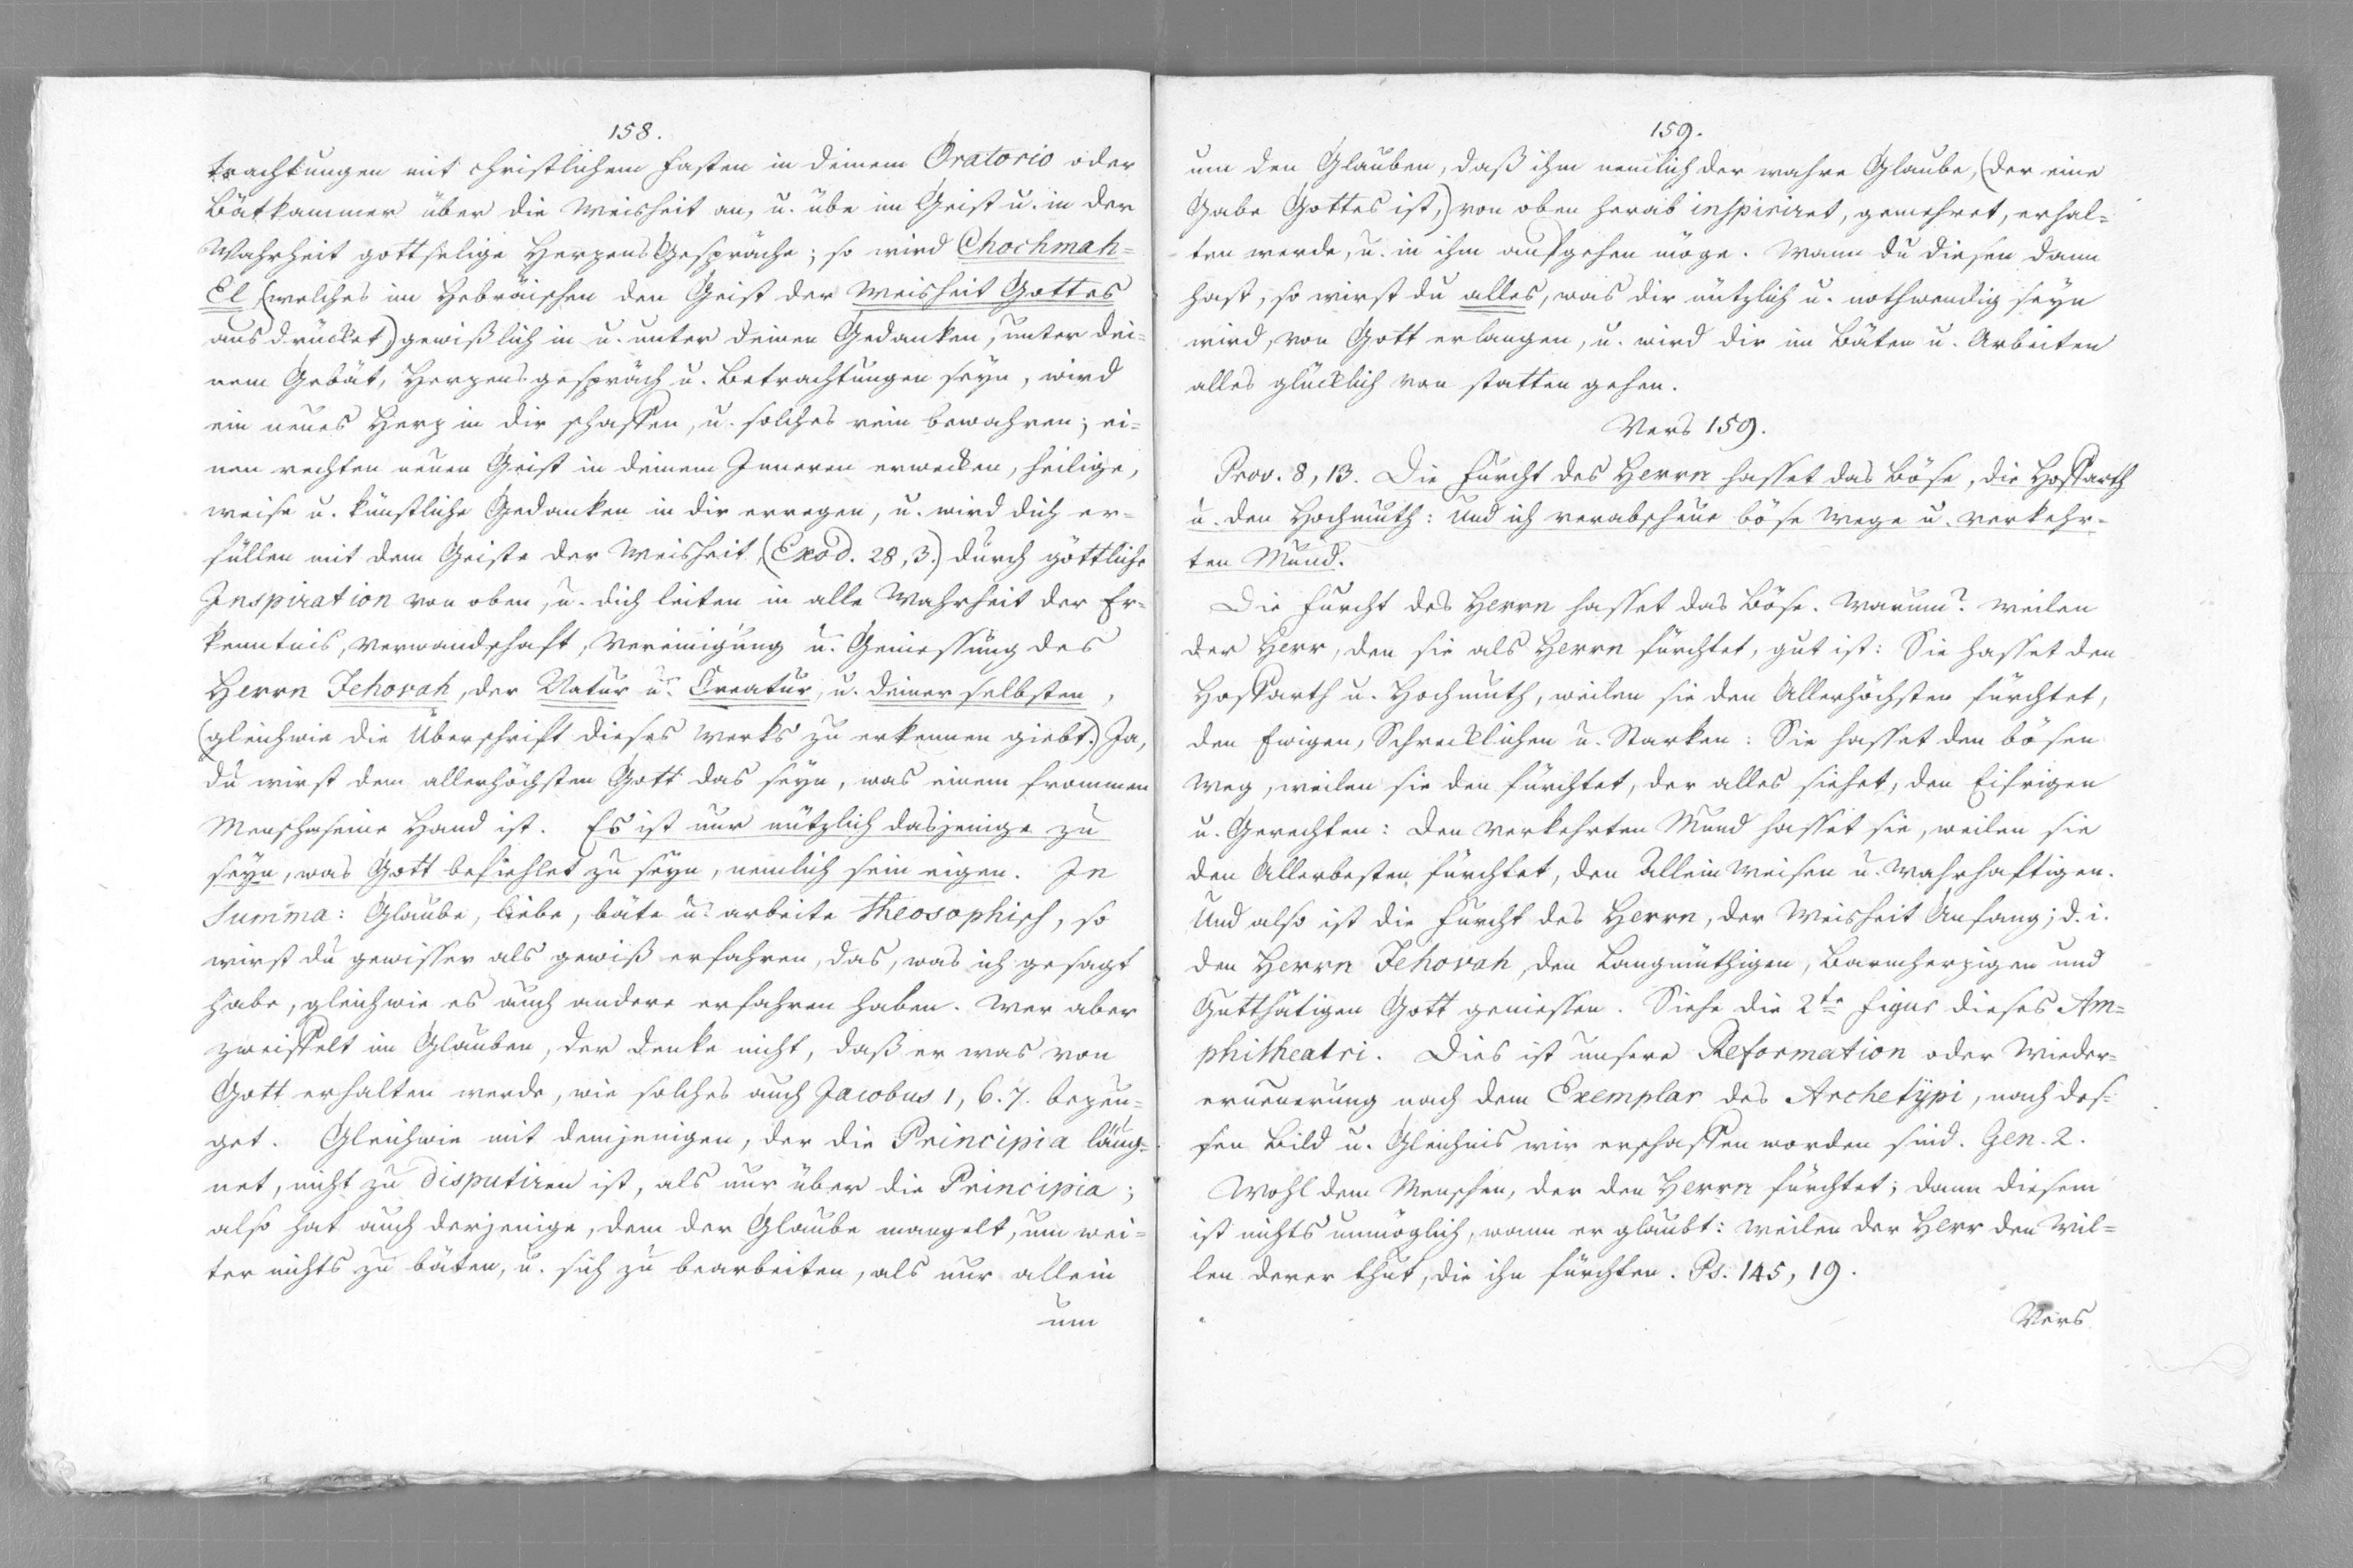 158.
trachtungen mit christlichem Fasten in deinem Oratorio oder
Bätkammer über die Weisheit an, u. übe im Geist u. in der
Wahrheit gottselige Herzens Gespräche; so wird Chochmah=
El (welches im Hebräischen den Geist der Weisheit Gottes
ausdrücket) gewißlich in u. unter deinen Gedanken, unter dei=
nem Gebät, Herzensgespräch u. Betrachtungen seyn, wird
ein neues Herz in dir schaffen, u. solches rein bewahren; ei=
nen rechten neuen Geist in deinem Inneren erwecken, heilige,
weise u. künstliche Gedanken in dir erregen, u. wird dich er=
füllen mit dem Geiste der Weisheit (Exod. 28, 3.) durch göttliche
Inspiration von oben, u. dich leiten in alle Wahrheit der Er=
kenntnis, Verwandschaft, Vereinigung u. Geniessung des
Herrn Jehovah, der Natur u. Creatur, u. deiner selbsten,
(gleichwie die Überschrift dieses Werks zu erkennen giebt.) Ja,
du wirst dem allerhöchsten Gott das seyn, was einem frommen
Menschen seine Hand ist. Es ist nur nützlich dasjenige zu
seyn, was Gott befiehlet zu seyn, nemlich sein eigen. In
Summa: Glaube, liebe, bäte u. arbeite theosophisch, so
wirst du gewisser als gewiß erfahren, das, was ich gesagt
habe, gleichwie es auch andere erfahren haben. Wer aber
zweiffelt im Glauben, der denke nicht, daß er was von
Gott erhalten werde, wie solches auch Jacobus 1, 6. 7. bezeu=
get. Gleichwie mit demjenigen, der die Principia läug=
net, nicht zu disputiren ist, als nur über die Principia;
also hat auch derjenige, dem der Glaube mangelt, um wei=
ter nichts zu bäten, u. sich zu bearbeiten, als nur allein
um
159.
um den Glauben, daß ihm nemlich der wahre Glaube, (der eine
Gabe Gottes ist,) von oben herab inspiriret, gemehret, erhal=
ten werde, u. in ihm aufgehen möge. Wann du diesen dann
hast, so wirst du alles, was dir nützlich u. nothwendig seyn
wird, von Gott erlangen, u. wird dir im Bäten u. Arbeiten
alles glücklich von statten gehen.
Vers 159.
Prov. 8, 13. Die Furcht des Herrn hasset das Böse, die Hoffarth
u. den Hochmuth: Und ich verabscheue böse Wege u. verkehr=
ten Mund.
Die Furcht des Herrn hasset das Böse. Warum? weilen
der Herr, den sie als Herrn fürchtet, gut ist: Sie hasset den
Hoffarth u. Hochmuth, weilen sie den Allerhöchsten fürchtet,
den Ewigen, Schrecklichen u. Starken: Sie hasset den bösen
Weg, weilen sie den fürchtet, der alles siehet, den Eifrigen
u. Gerechten: den verkehrten Mund hasset sie, weilen sie
den Allerbesten fürchtet, den Allein Weisen u. Wahrhaftigen.
Und also ist die Furcht des Herrn, der Weisheit Anfang; d. i.
den Herrn Jehovah, den Langmüthigen, Barmherzigen und
Gutthätigen Gott geniessen. Siehe die 2te Figur dieses Am=
phitheatri. Dies ist unsere Reformation oder Wieder=
erneuerung nach dem Exemplar des Archetypi, nach des=
sen Bild u. Gleichnis wir erschaffen worden sind. Gen. 2.
Wohl dem Menschen, der den Herrn fürchtet; dann diesem
ist nichts unmöglich, wann er glaubt: weilen der Herr den Wil=
len derer thut, die ihn fürchten. Ps. 145, 19.
Vers